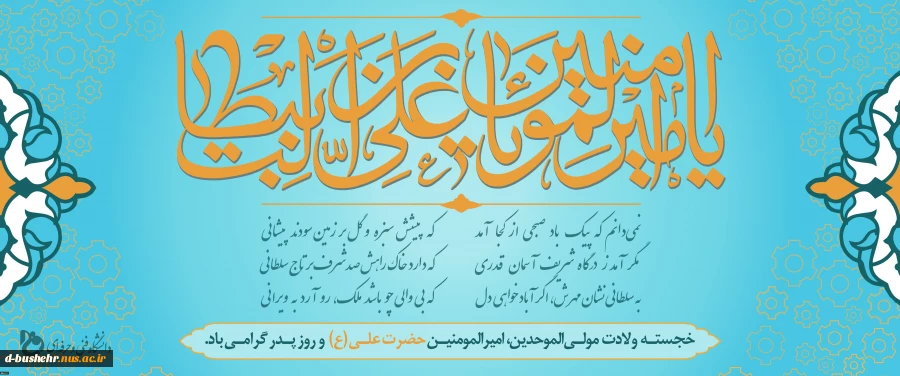 یا امیرالمومنین یا علی بن ابیطالب
نمی‌دانم که پیک باد صبحی از کجا آمد که پیشش سبزه و گل بر زمین سودند پیشانی
مگر آمد ز درگاه شریف آسمان قدری که دارد خاک راهش صد شرف بر تاج سلطانی
به سلطانی نشان مهرش، اگر آباد خواهی دل که بی والی چو باشد ملک، رو آرد به ویرانی
خجسته ولادت مولی‌الموحدین، امیرالمومنین حضرت علی (ع) و روز پدر گرامی باد.
دانشگاه فنی و حرفه‌ای
d-bushehr.nus.ac.ir